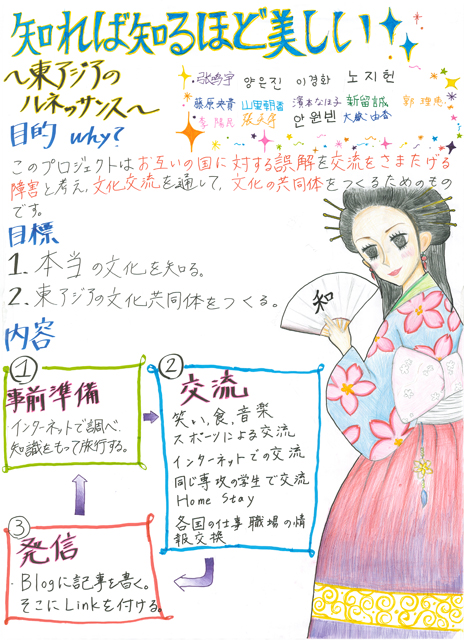 知れば知るほど美しい
～東アジアの
ルネッサンス～
張鳴宇 양은진 이경화 노지헌
藤原央青 山里朝香 濱本なほ子 新留誠 郭理恵
李陽民 안원빈 大蔵由香
目的 Why?
このプロジェクトはお互いの国に対する誤解を交流をさまたげる
障害と考え、文化交流を通して、文化の共同体をつくるためのもの
です。
目標
1. 本当の文化を知る。
2. 東アジアの文化共同体をつくる。
知
内容
①
事前準備
インターネットで調べ、
知識をもって旅行する。
②
交流
笑い,食,音楽
スポーツによる交流
インターネットでの交流
同じ専攻の学生で交流
Home Stay
各国の仕事職場の情
報交換
③
発信
・Blogに記事を書く。
そこにLinkを付ける。